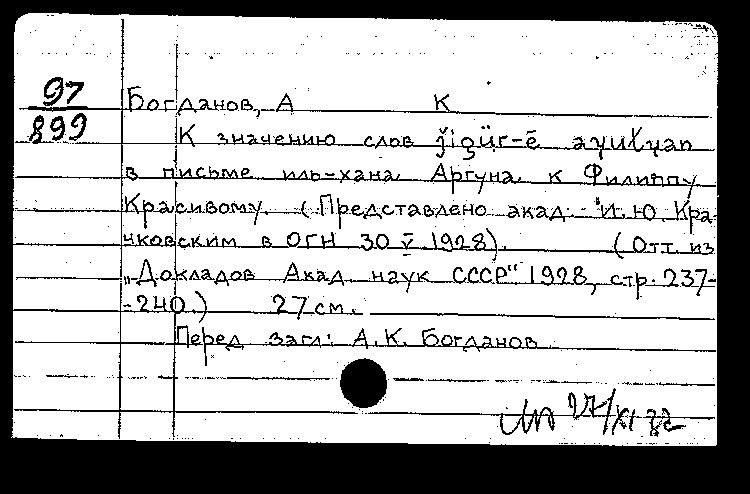 97
899
Богданов, А К
К значению слов ǰigür-ē ayulɣan
в письме иль-хана Аргуна к Филиппу
Красивому. (Представлено акад. И.Ю. Кра-
чковским в ОГН 30 V 1928). (Отт. из
„Докладов Акад. наук СССР" 1928, стр. 237-
-240.) 27 см.
Перед загл: А.К. Богданов
27/XI